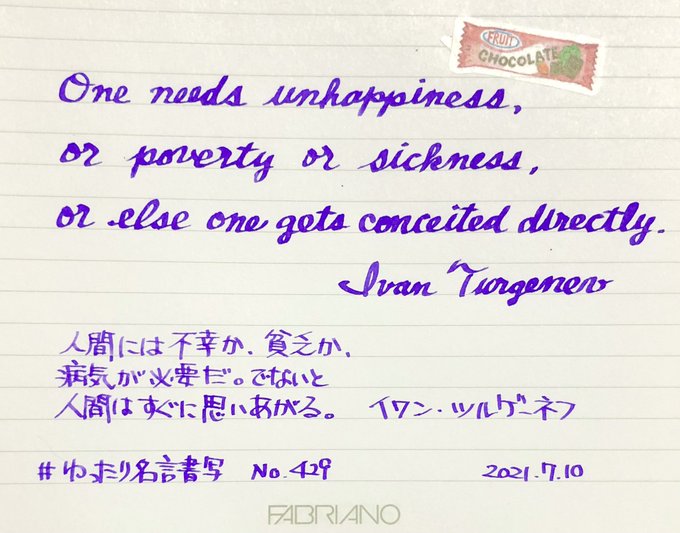 FRUIT
CHOCOLATE
One needs unhappiness,
or poverty or sickness,
or else one gets conceited directly.
Ivan Turgenev
人間には不幸か、貧乏か、
病気が必要だ。でないと
人間はすぐに思いあがる。 イワン・ツルゲーネフ
#ゆったり名言書写 No.429 2021.7.10
FABRIANO